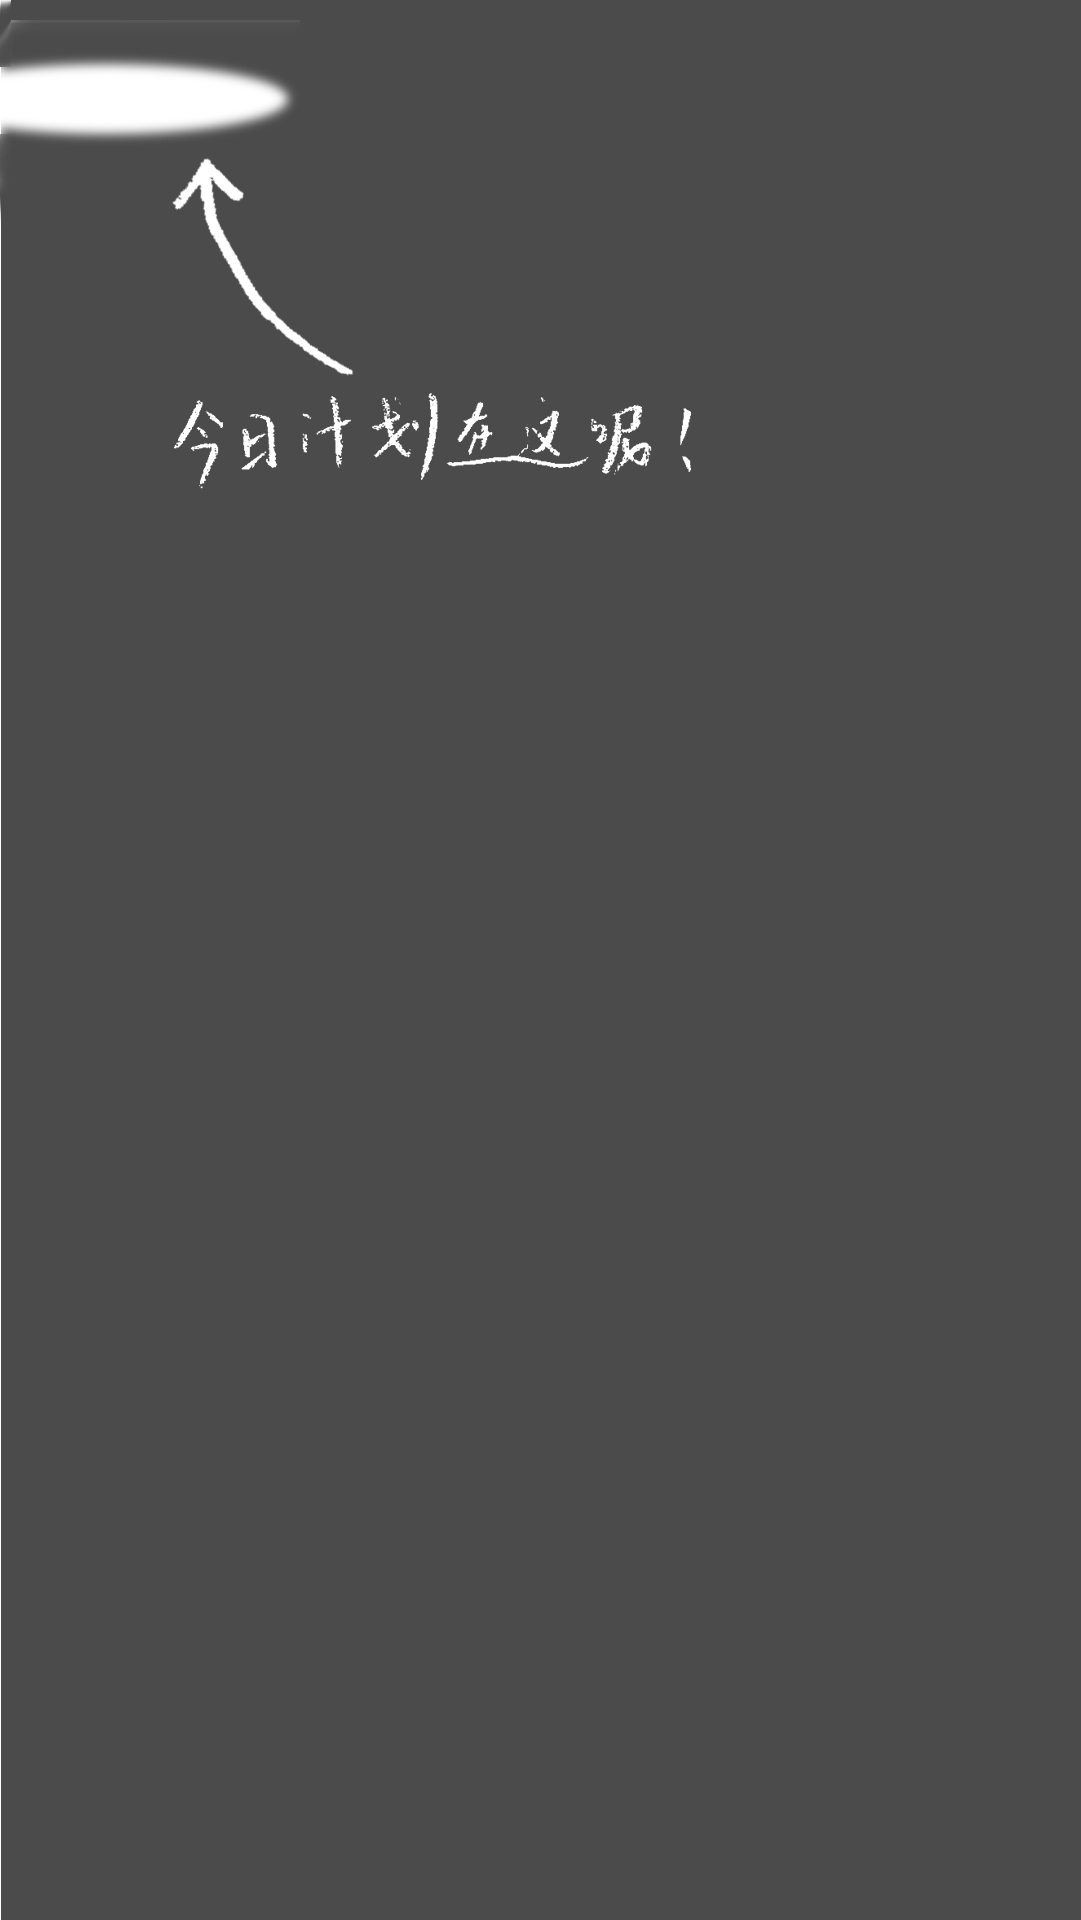 今日计划在这呢！